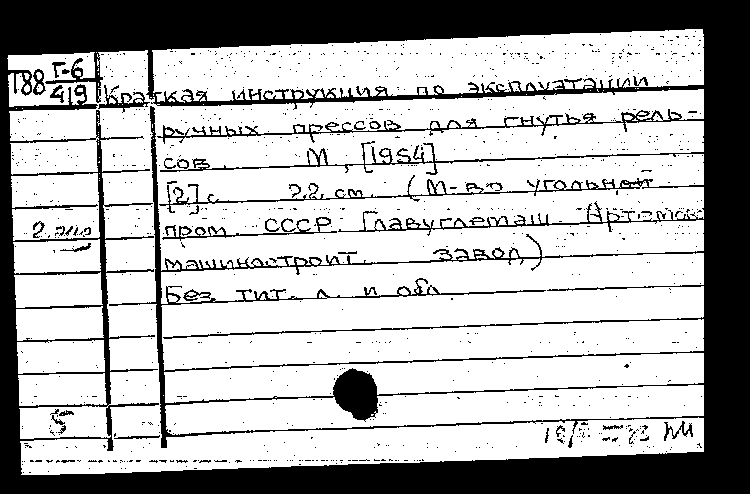 Т88 Г-6
419
Краткая инструкция по эксплуатации
ручных прессов для гнутья рель-
сов. М., [1954]
[2] с. 22 см. (М-во угольной
2 экз
пром. СССР. Главуглемаш. Артемов.
машиностроит. завод)
Без тит. л. и обл.
5